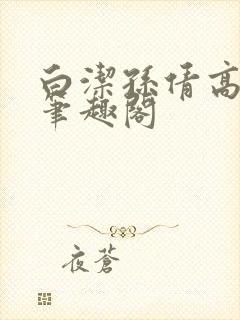 白潔孫倩高
筆趣閣
夜蒼